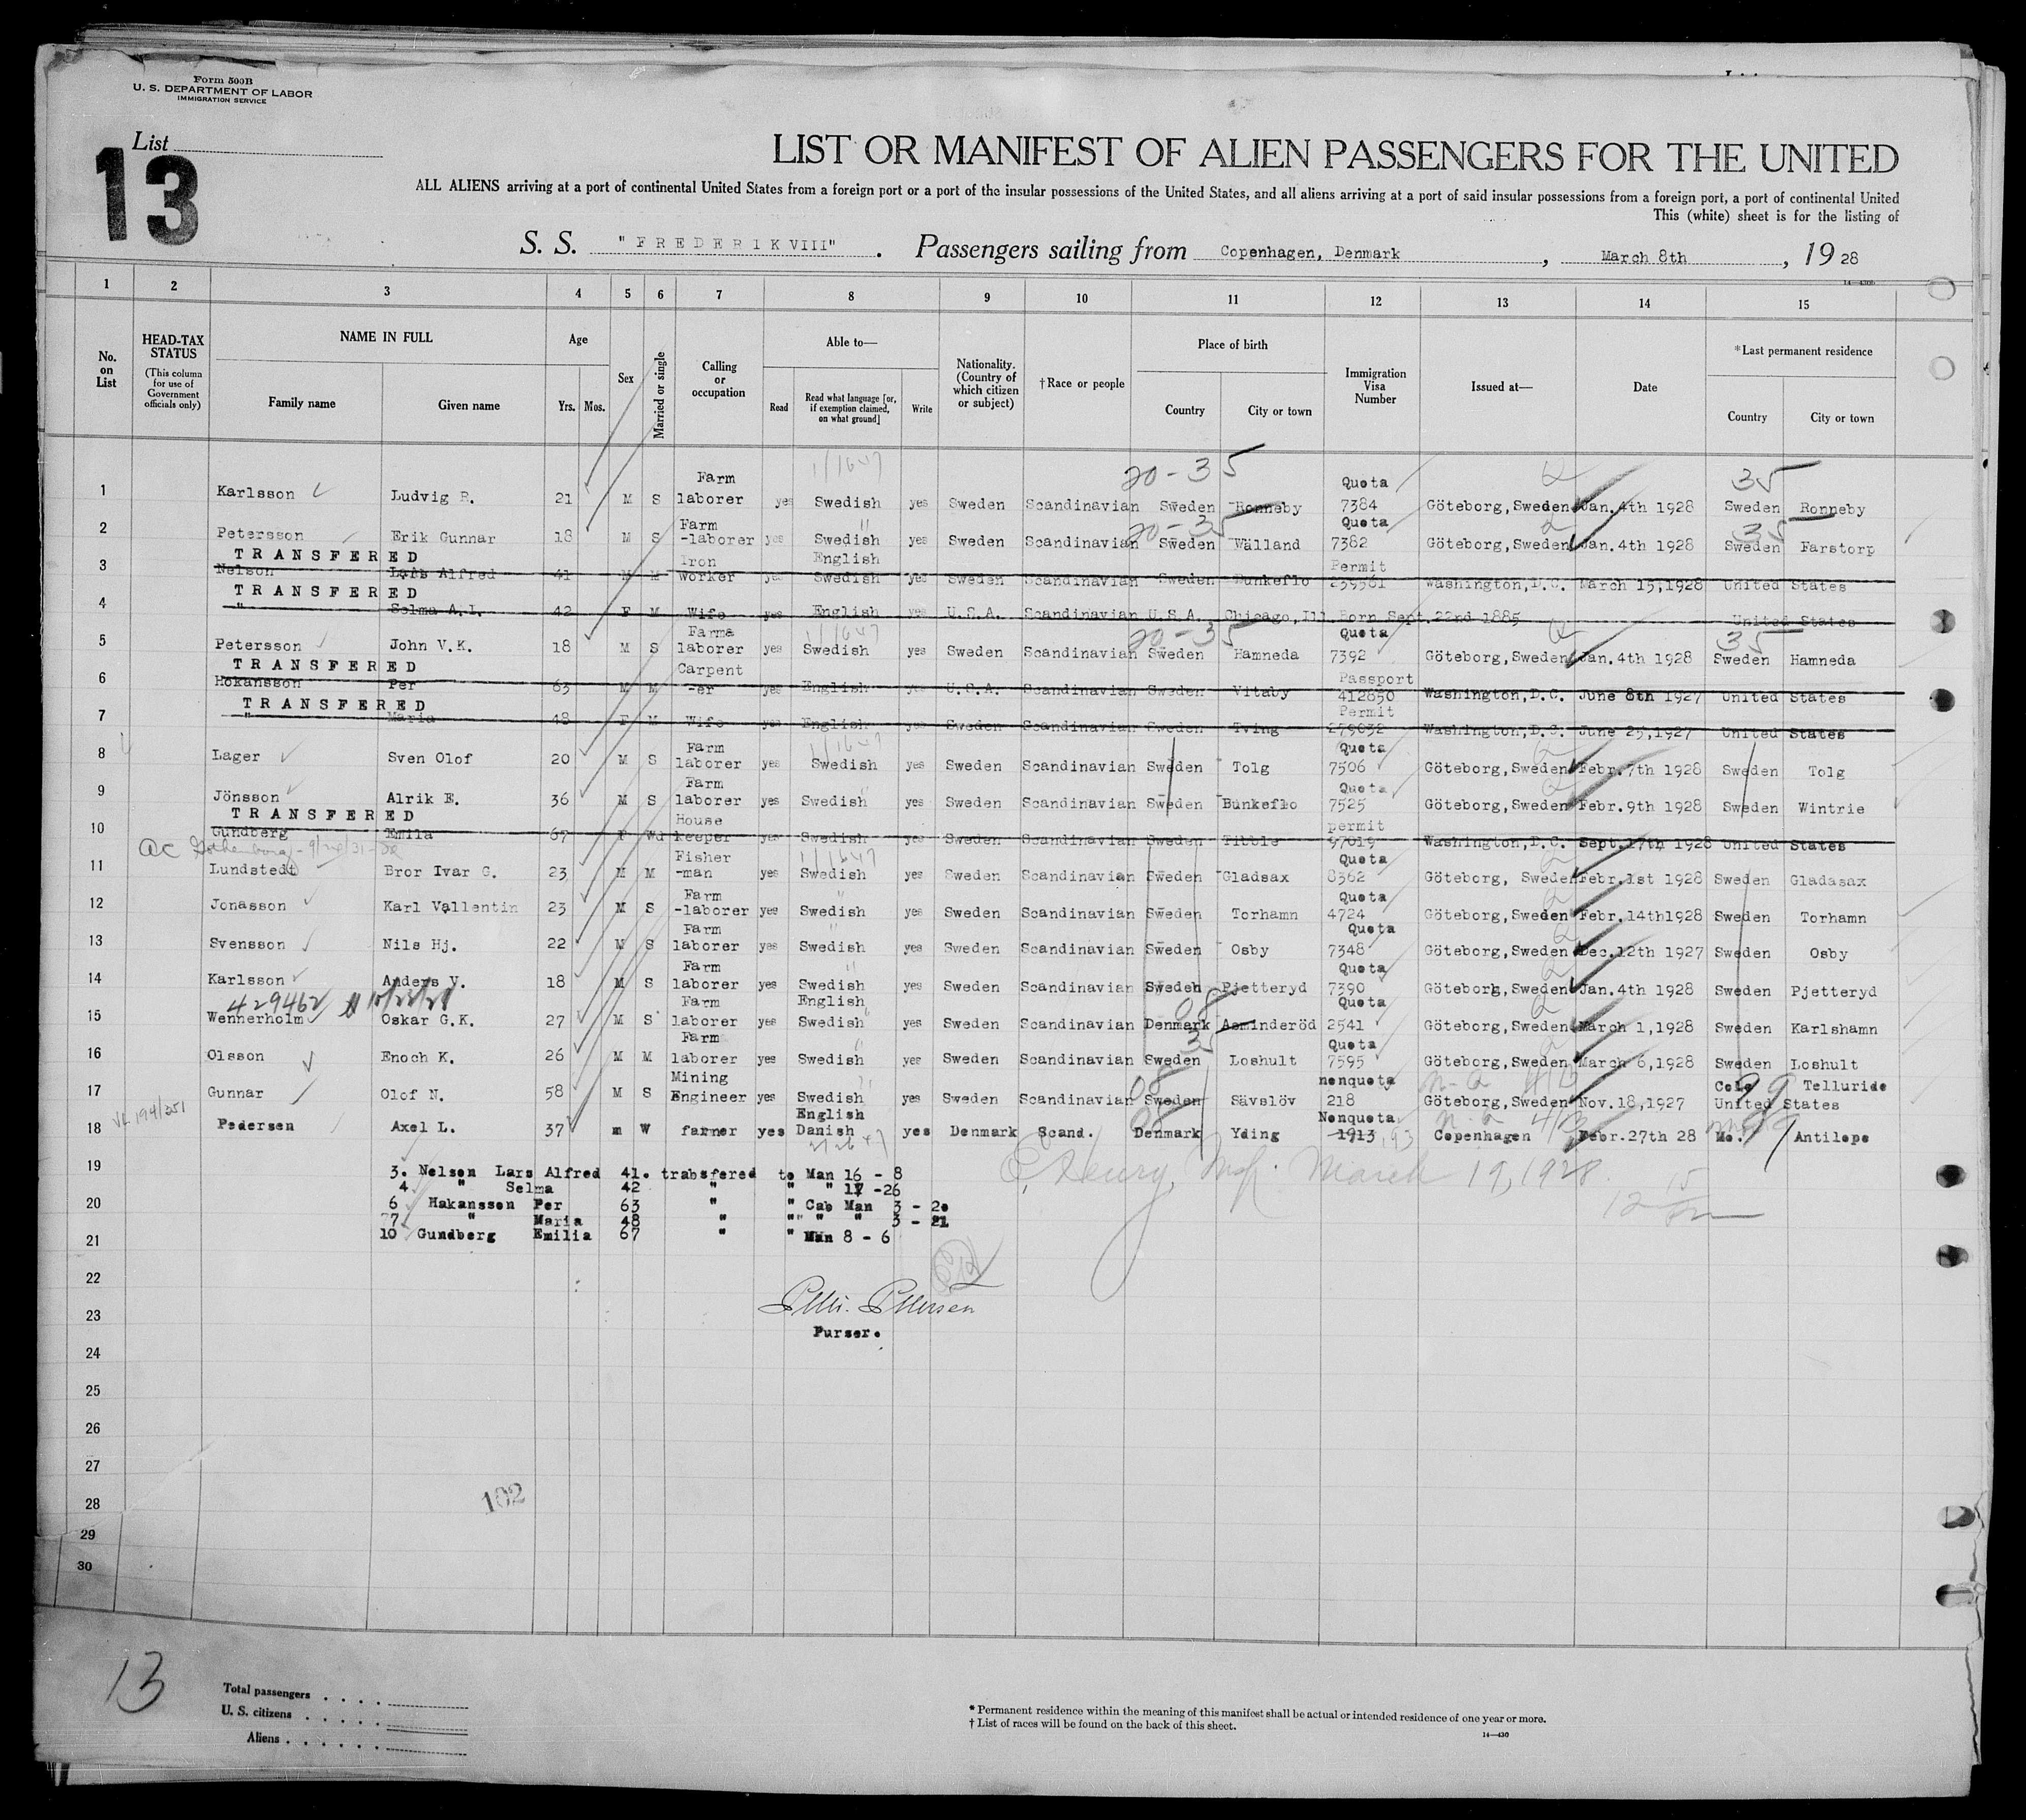 Form 500B
U. S. DEPARTMENT OF LABOR
IMMIGRATION SERVICE
List
13
LIST OR MANIFEST OF ALIEN PASSENGERS FOR THE UNITED
ALL ALIENS arriving at a port of continental United States from a foreign port or a port of the insular possessions of the United States, and all aliens arriving at a port of said insular possessions from a foreign port, a port of continental United
This (white) sheet is for the listing of
S. S. "FREDERIK VIII". Passengers sailing from Copenhagen, Denmark, March 8th, 1928
14—430b
1 2 3 4 5 6 7 8 9 10 11 12 13 14 15
No. on List
HEAD-TAX STATUS (This column for use of Government officials only)
NAME IN FULL Family name Given name
Age Yrs. Mos.
Sex
Married or single
Calling or occupation
Able to— Read Read what language [or, if exemption claimed, on what ground] Write
Nationality. (Country of which citizen or subject)
†Race or people
Place of birth Country City or town
Immigration Visa Number
Issued at—
Date
*Last permanent residence Country City or town
20-35 35
1 Karlsson Ludvig R. 21 M S Farm laborer yes Swedish yes Sweden Scandinavian Sweden Ronneby Quota 7384 Göteborg, Sweden Jan. 4th 1928 Sweden Ronneby
20-35 35
2 Petersson Erik Gunnar 18 M S Farm -laborer yes Swedish yes Sweden Scandinavian Sweden Wälland Quota 7382 Göteborg, Sweden Jan. 4th 1928 Sweden Farstorp
TRANSFERED
3 Nelson Lars Alfred 41 M M Iron worker yes English Swedish yes Sweden Scandinavian Sweden Bunkeflo Permit 239561 Washington, D.C. March 15, 1928 United States
TRANSFERED
4 " Selma A.I. 42 F M Wife yes English yes U.S.A. Scandinavian U.S.A. Chicago, Ill Born Sept. 22nd 1885 United States
20-35 35
5 Petersson John V.K. 18 M S Farma laborer yes Swedish yes Sweden Scandinavian Sweden Hamneda Quota 7392 Göteborg, Sweden Jan. 4th 1928 Sweden Hamneda
TRANSFERED
6 Hokansson Per 63 M M Carpent -er yes English yes U.S.A. Scandinavian Sweden Vitaby Passport 412650 Washington, D.C. June 8th 1927 United States
TRANSFERED
7 " Maria 48 F M Wife yes English yes Sweden Scandinavian Sweden Tving Permit 279032 Washington, D.C. June 25, 1927 United States
8 Lager Sven Olof 20 M S Farm laborer yes Swedish yes Sweden Scandinavian Sweden Tolg Quota 7506 Göteborg, Sweden Febr. 7th 1928 Sweden Tolg
9 Jönsson Alrik E. 36 M S Farm laborer yes Swedish yes Sweden Scandinavian Sweden Bunkeflo Quota 7525 Göteborg, Sweden Febr. 9th 1928 Sweden Wintrie
TRANSFERED
10 Gundberg Emila 67 F Wd House keeper yes Swedish yes Sweden Scandinavian Sweden Tibble permit 97019 Washington, D.C. Sept. 17th 1928 United States
11 Lundstedt Bror Ivar G. 23 M M Fisher -man yes Swedish yes Sweden Scandinavian Sweden Gladsax Quota 8362 Göteborg, Sweden Febr. 1st 1928 Sweden Gladasax
12 Jonasson Karl Vallentin 23 M S Farm -laborer yes Swedish yes Sweden Scandinavian Sweden Torhamn Quota 4724 Göteborg, Sweden Febr. 14th 1928 Sweden Torhamn
13 Svensson Nils Hj. 22 M S Farm laborer yes Swedish yes Sweden Scandinavian Sweden Osby Quota 7348 Göteborg, Sweden Dec. 12th 1927 Sweden Osby
14 Karlsson Anders V. 18 M S Farm laborer yes Swedish yes Sweden Scandinavian Sweden Pjetteryd Quota 7390 Göteborg, Sweden Jan. 4th 1928 Sweden Pjetteryd
429462
15 Wennerholm Oskar G.K. 27 M S Farm laborer yes English Swedish yes Sweden Scandinavian Denmark Asminderöd Quota 2541 Göteborg, Sweden March 1, 1928 Sweden Karlshamn
16 Olsson Enoch K. 26 M M Farm laborer yes Swedish yes Sweden Scandinavian Sweden Loshult Quota 7595 Göteborg, Sweden March 6, 1928 Sweden Loshult
17 Gunnar Olof N. 58 M S Mining Engineer yes Swedish yes Sweden Scandinavian Sweden Sävslöv nonquota 218 Göteborg, Sweden Nov. 18, 1927 Colo Telluride United States
18 Pedersen Axel L. 37 m W farmer yes English Danish yes Denmark Scand. Denmark Yding Nonquota 1913 Copenhagen Febr. 27th 28 Mo. Antilope
19 3. Nelson Lars Alfred 41. trabsfered to Man 16 - 8
4 " Selma 42 " " " 17 -26
20 6 Hakansson Per 63 " " Cab Man 3 - 20
7 " Maria 48 " " " " 3 - 21
21 10 Gundberg Emilia 67 " " Man 8 - 6
March 19, 1928
22
23
Purser.
24
25
26
27
28
102
29
30
13
Total passengers
U. S. citizens
Aliens
* Permanent residence within the meaning of this manifest shall be actual or intended residence of one year or more.
† List of races will be found on the back of this sheet.
14—430